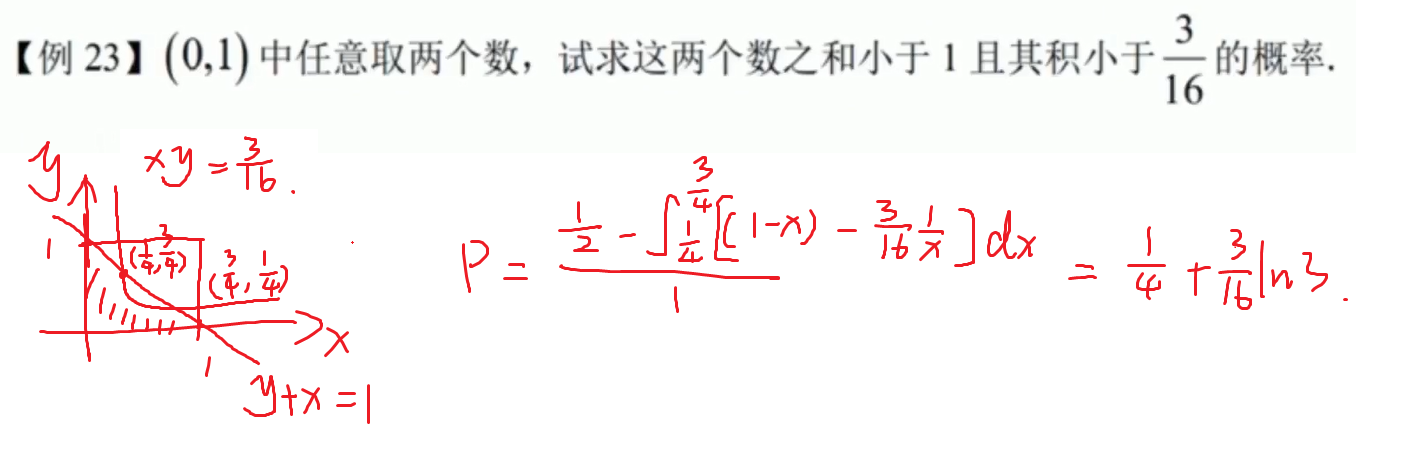 【例 23】(0,1) 中任意取两个数，试求这两个数之和小于 1 且其积小于 3/16 的概率.
y
xy = 3/16 .
1
(1/4, 3/4)
(3/4, 1/4)
x
1
y+x=1
P = (1/2 - ∫_{1/4}^{3/4} [(1-x) - 3/16 1/x] dx) / 1 = 1/4 + 3/16 ln3 .